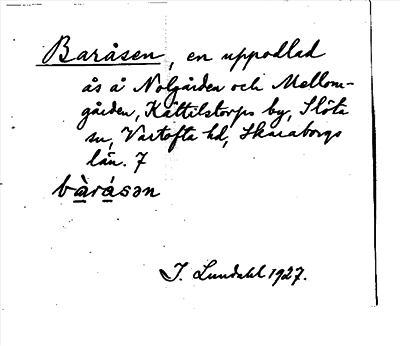 Baråsen, en uppodlad
ås å Nolgården och Mellom-
gården, Kättilstorps by, Slöta
sn, Vartofta hd, Skaraborgs
län. 7
bàråsən
I. Lundahl 1927.